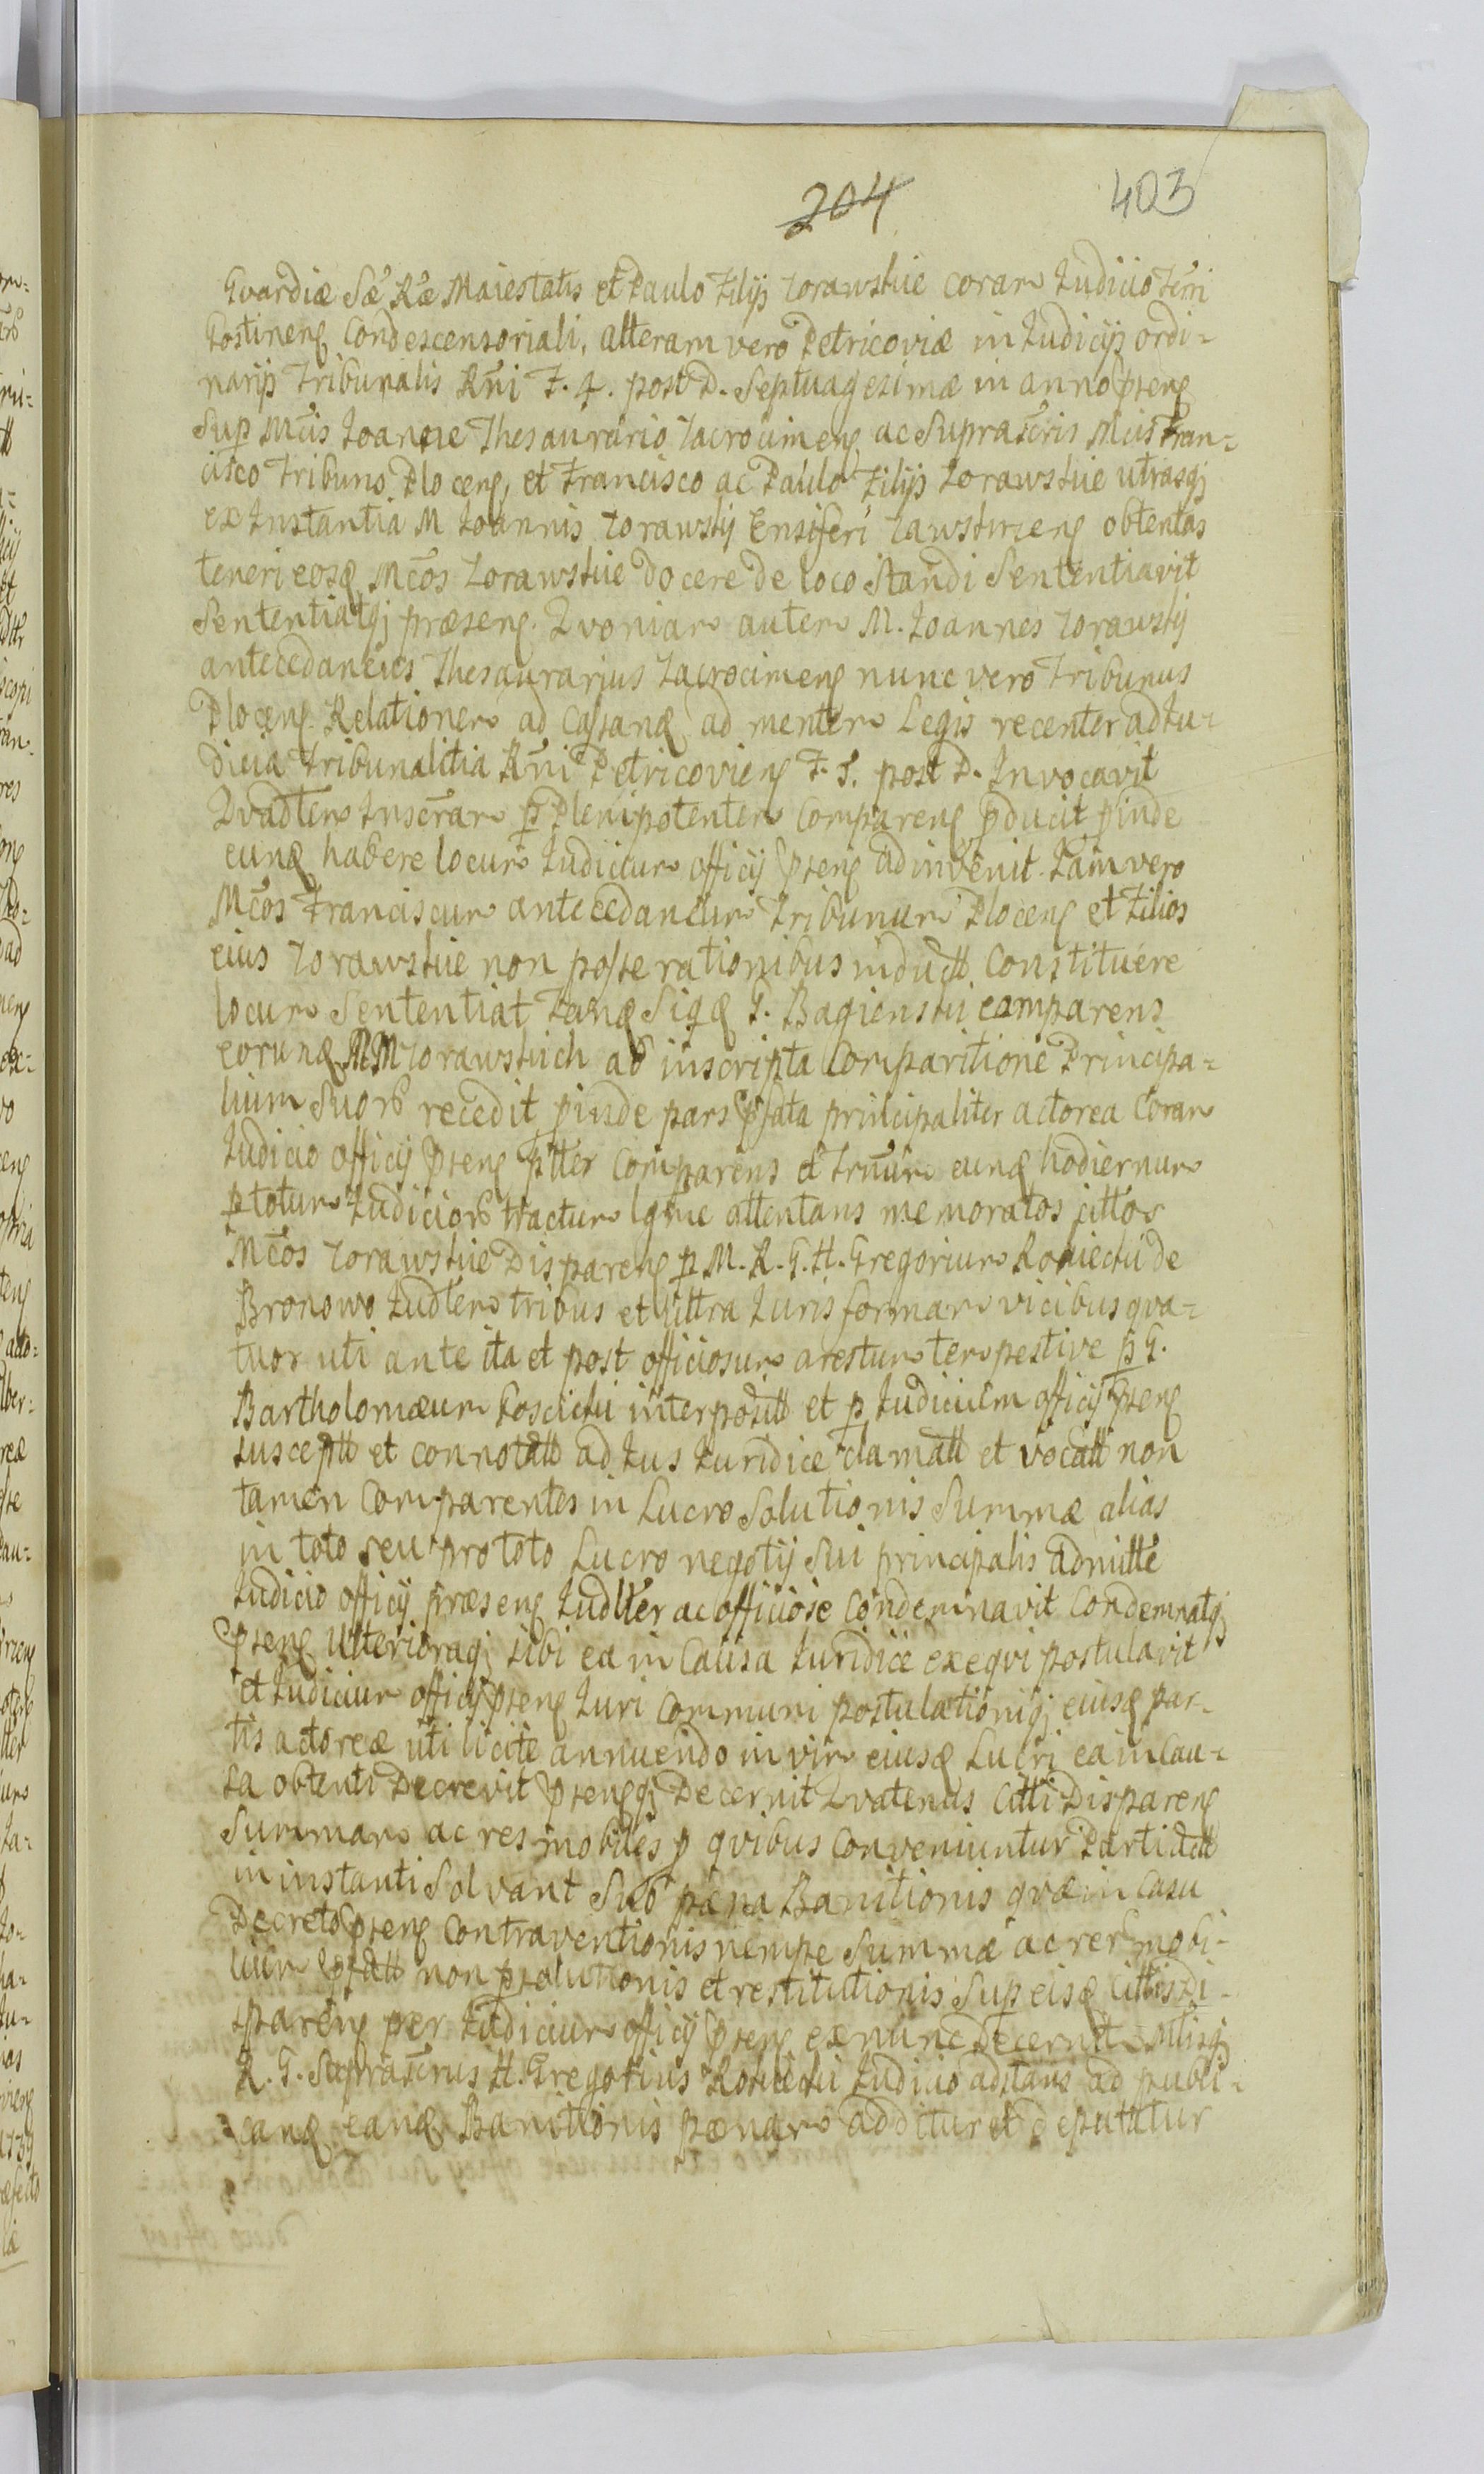 204 403
Gvardiæ Sæ Ræ Maiestatis et Paulo Filijs Zorawskie coram Iudicio Trri
Gostinen Condescensoriali, alteram vero Petricoviæ in Iudicijs ordi-
narijs Tribunalis Rni F. 4. post D. Septuagesimæ in anno psen
Sup Mcis Ioanne Thesaurario Zacrocimen ac Suprascris Mcis Fran-
cisco Tribuno Plocen, et Francisco ac Paulo Filijs Zorawskie utrasq
ex Instantia M Ioannis Zorawsky Ensiferi Zawskrzen obtentas
teneri eosd Mcos Zorawskie docere de loco Standi Sententiavit
Sententiatq præsen. Qvoniam autem M. Ioannes Zorawsky
antecedaneus Thesaurarius Zacrocimen nunc vero Tribunus
Plocen Relationem ad Cassand ad mentem Legis recenter ad Iu-
dicia Tribunalitia Rni Petricovien F. 5. post D. Invocavit
Qvadtem Inscram p Plenipotentem Comparen pducit pinde
eund habere locum Iudicium officij psen adinvenit. Iam vero
Mcos Franciscum antecedaneum Tribunum Plocen et Filios
eius Zorawskie non posse rationibus induct Constituere
locum Sententiat Tand Siqd G. Bagienski comparens
eorund MM Zorawskich ab inscripta Comparitione Principa-
lium Suor recedit pinde pars psata principaliter actorea Coram
Iudicio officij psen ptter Comparens et Trnum eund hodiernum
p totum Iudicior tractum lgme attentans memoratos cittos
Mcos Zorawskie Disparen p M. R. G. H. Gregorium Rokicki de
Bronowo Iudtem tribus et ultra Iuris formam vicibus qva-
tuor uti ante ita et post officiosum arestum tempestive p G.
Bartholomæum Koscicki interposit et p Iudicium officij psen
suscept et connotatt ad Ius Iuridice clamatt et vocatt non
tamen Comparentes in Lucro Solutionis Summæ alias
in toto seu pro toto Lucro negotij Sui principalis admitte
Iudicio officij præsen Iudtter ac officiose Condemnavit Condemnatq
psen Ulterioraq sibi ea in Causa Iuridice exeqvi postulavit
et Iudicium officij psen Iuri Communi postulationiq eiusd par-
tis actoreæ uti licite annuendo in vim eiusd Lucri ea in Cau-
sa obtenti Decrevit psenq Decernit Qvatenus Citti Disparen
Summam ac res mobiles p qvibus Conveniuntur Parti Act
in instanti Solvant Sub pæna Banitionis qvæ in Casu
Decreto psen Contraventionis nempe Summæ ac rer mobi-
lium psatt non psolutionis et restitutionis Sup eisd Cittis Di-
sparen per Iudicium officij psen ex nunc Decernit Mtisq
R. G. Suprascrus H. Gregorius Rokicki Iudicio adstans ad publi-
cand eand Banitionis pænam additur et deputatur